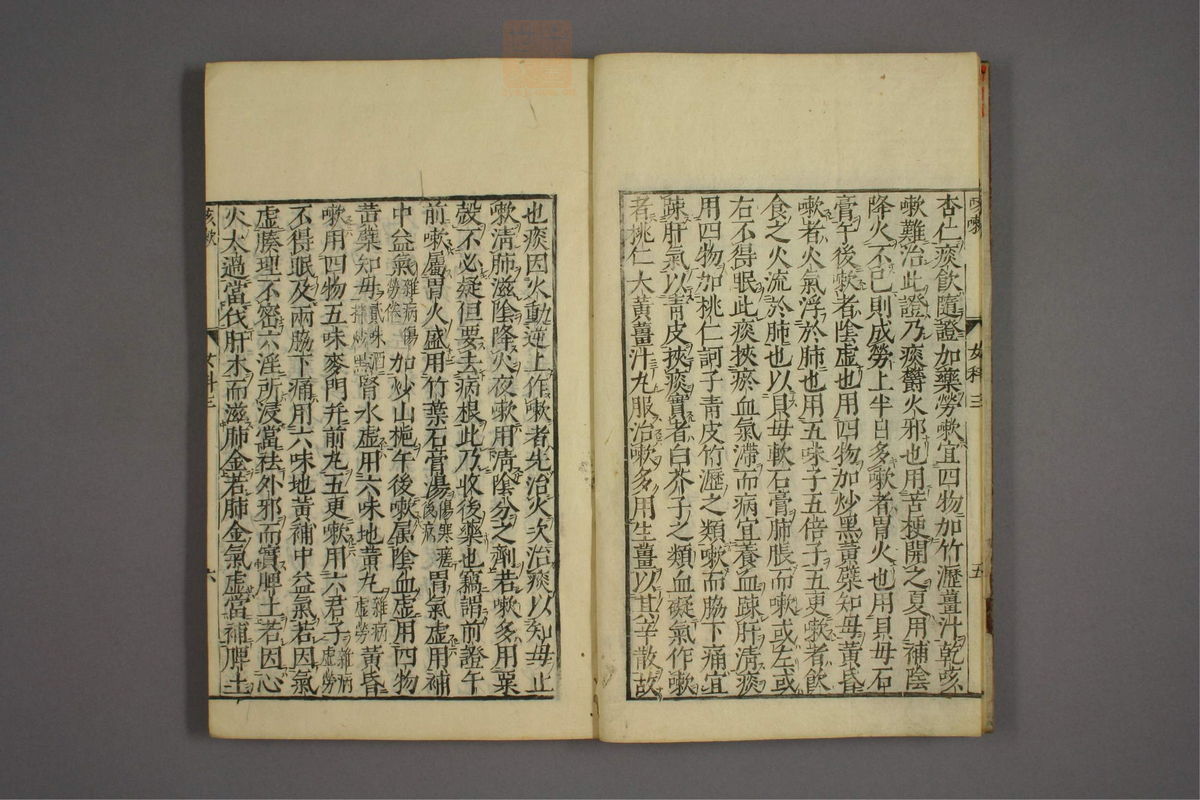 咳嗽
女科三
五
杏仁痰飲隨證加藥勞嗽宜四物加竹瀝薑汁乾咳
嗽難治此證乃痰欝火邪也用苦梗開之夏用補陰
降火不已則成勞上半日多嗽者胃火也用貝母石
膏午後嗽者陰虚也用四物加炒黑黄蘗知母黄昏
嗽者火氣浮於肺也用五味子五倍子五更嗽者飲
食之火流於肺也以貝母軟石膏肺脹而嗽或左或
右不得眠此痰挾瘀血氣滯而病宜養血踈肝清痰
用四物加桃仁訶子青皮竹瀝之類嗽而脇下痛宜
踈肝氣以青皮挾痰實者白芥子之類血礙氣作嗽
者桃仁大黄薑汁丸服治嗽多用生薑以其辛散故
也痰因火動逆上作嗽者先治火次治痰以知母止
嗽清肺滋陰降火夜嗽用清陰分之劑若嗽多用粟
殼不必疑但要去病根此乃收後藥也竊謂前證午
前嗽屬胃火盛用竹葉石膏湯傷寒瘥後病胃氣虚用補
中益氣雜病傷勞倦加炒山梔午後嗽属陰血虚用四物
黄蘗知母腎水虚用六味地黄丸雜病虚勞黄昏
嗽用四物五味麥門并前丸五更嗽用六君子雜病虚勞
不得眠及兩脇下痛用六味地黄補中益氣若因氣
虚腠理不密六淫所浸當祛外邪而實脾土若因心
火太過當伐肝木而滋肺金若肺金氣虚當補脾土
咳嗽
女科三
六